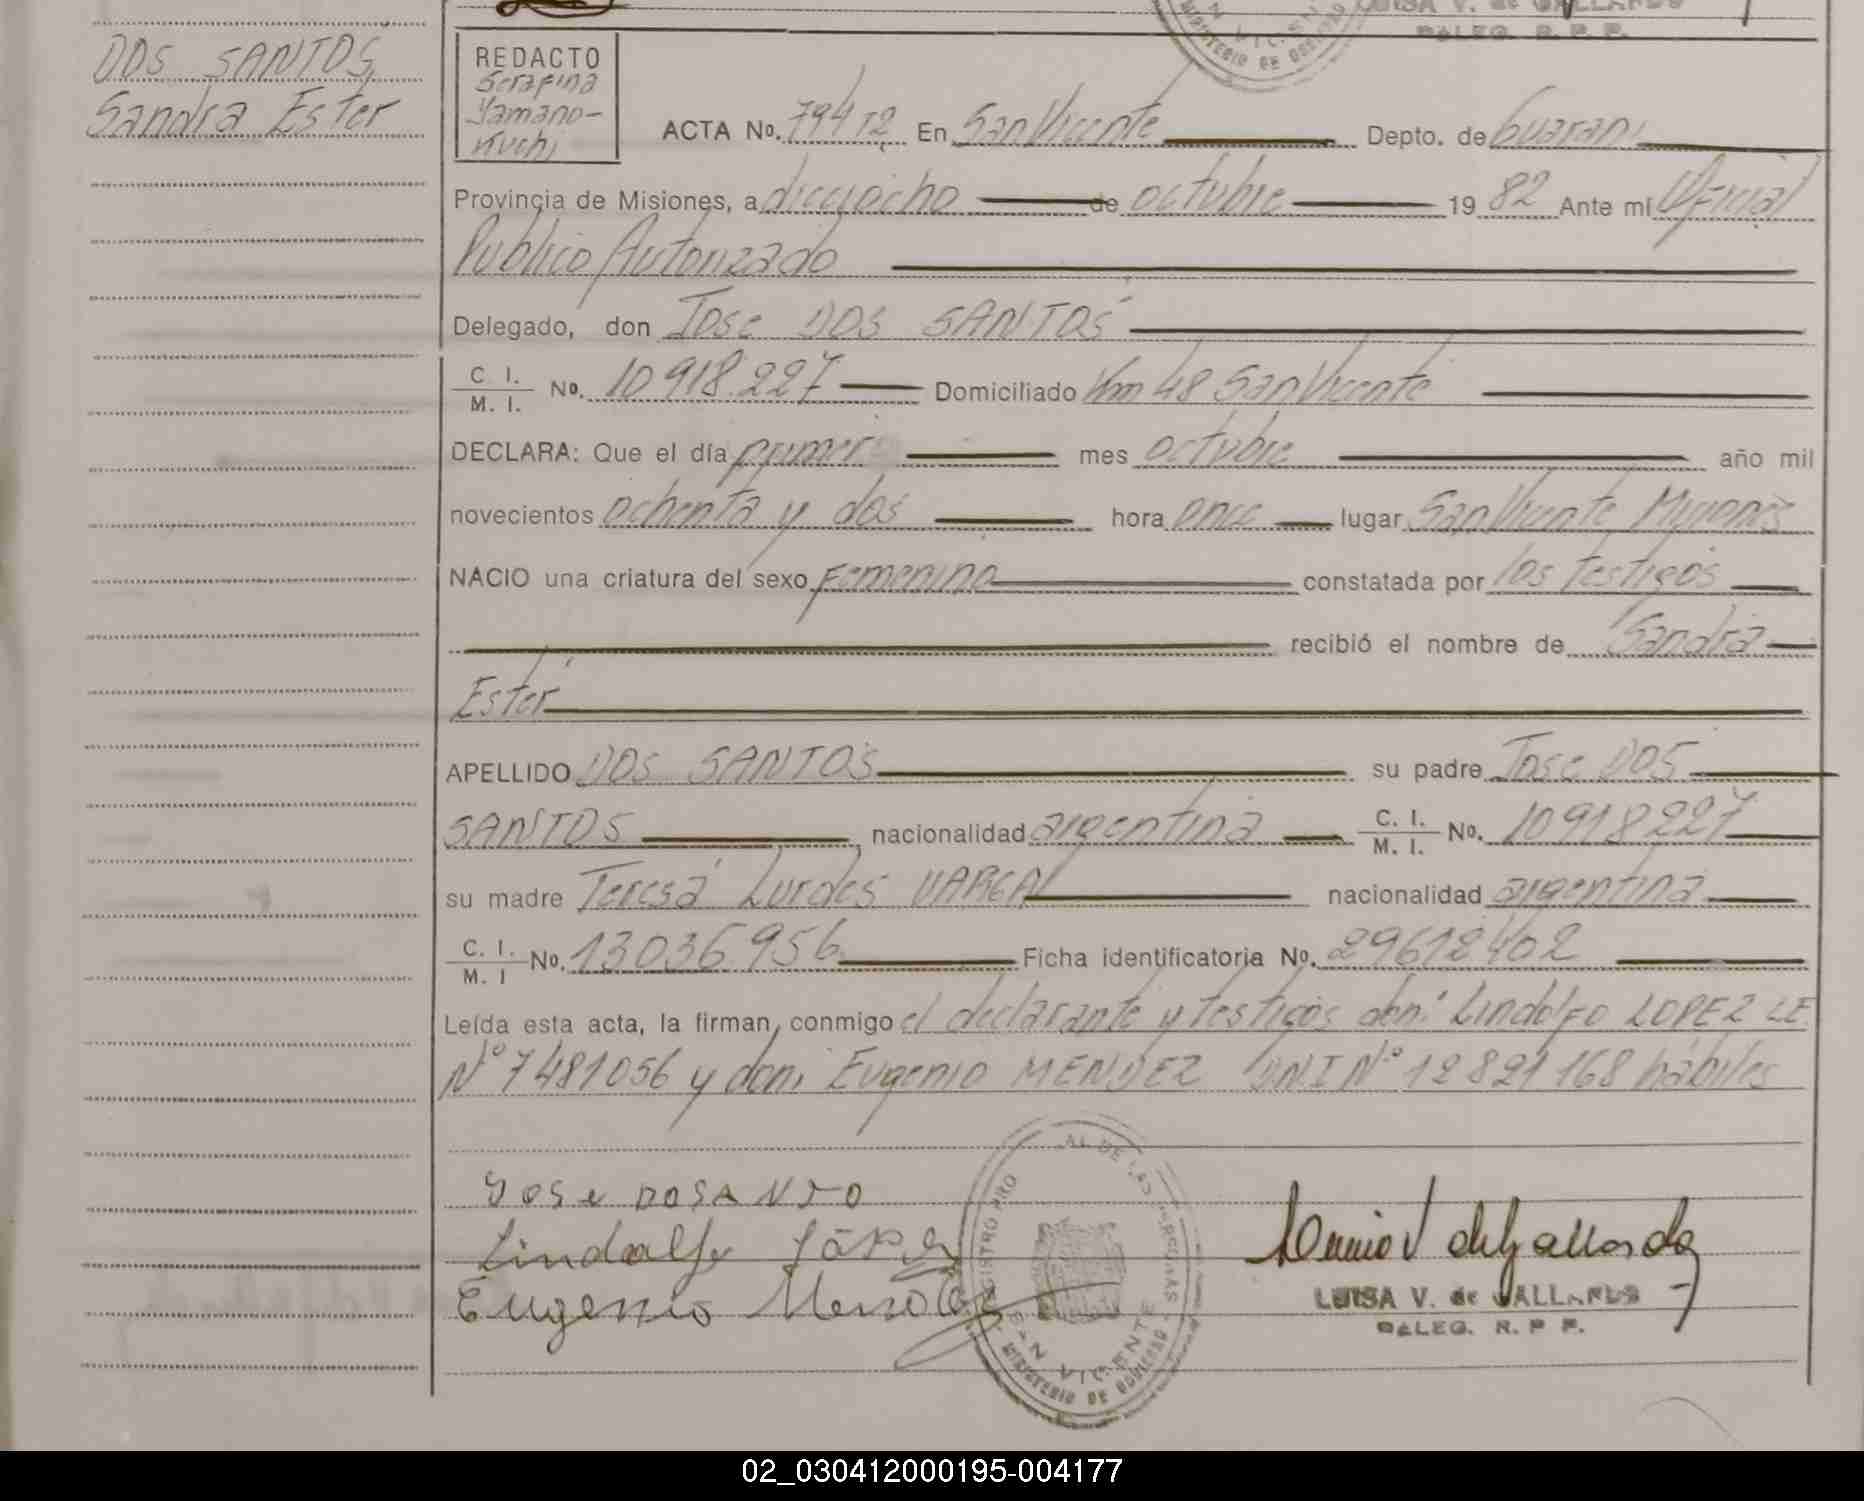 LUISA V. de GALLARDO
DALEG. R. P. P.
MINISTERIO DE GOBIERNO
DOS SANTOS,
Sandra Ester
REDACTO
Serafina
Yamano-
Kuchi
ACTA No. 794 T2 En San Vicente Depto. de Guarani
Provincia de Misiones, a dieciocho de octubre 19 82 Ante mi Oficial
Publico Autorizado
Delegado, don Jose DOS SANTOS
C. I. / M. I. No. 10918.227 Domiciliado Km 48 San Vicente
DECLARA: Que el día primero mes octubre año mil
novecientos ochenta y dos hora once lugar San Vicente Misiones
NACIO una criatura del sexo Femenino constatada por los testigos
recibió el nombre de Sandra
Ester
APELLIDO DOS SANTOS su padre Jose DOS
SANTOS nacionalidad argentina C. I. / M. I. No. 10918227
su madre Teresa Lurdes VARGA nacionalidad argentina
C. I. / M. I No. 13036.956 Ficha identificatoria No. 29612402
Leída esta acta, la firman, conmigo el declarante y testigos don: Lindolfo LOPEZ LE
Nº 7481056 y don: Eugenio MENDEZ DNI Nº 12821168 hábiles
Jose DOSANTO
Lindolfo López
Eugenio Mendez
SAN VICENTE
MINISTERIO DE GOBIERNO
LUISA V. de GALLARDO
DALEG. R. P. P.
02_030412000195-004177